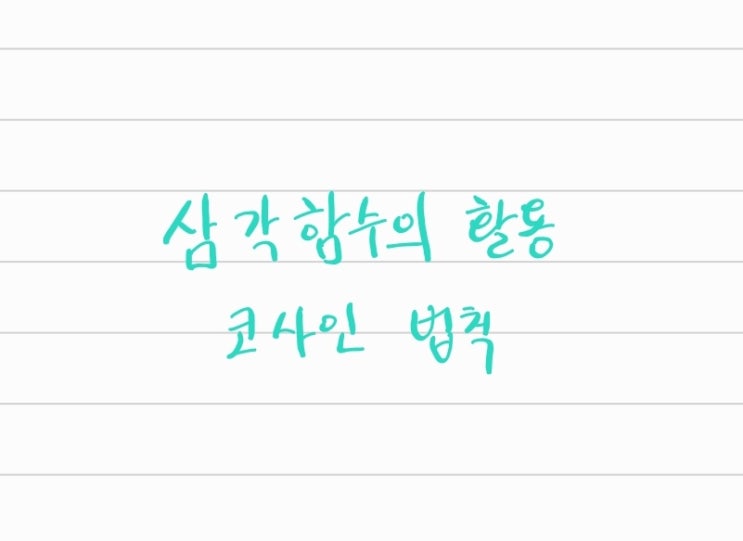 삼각함수의 활용
코사인 법칙